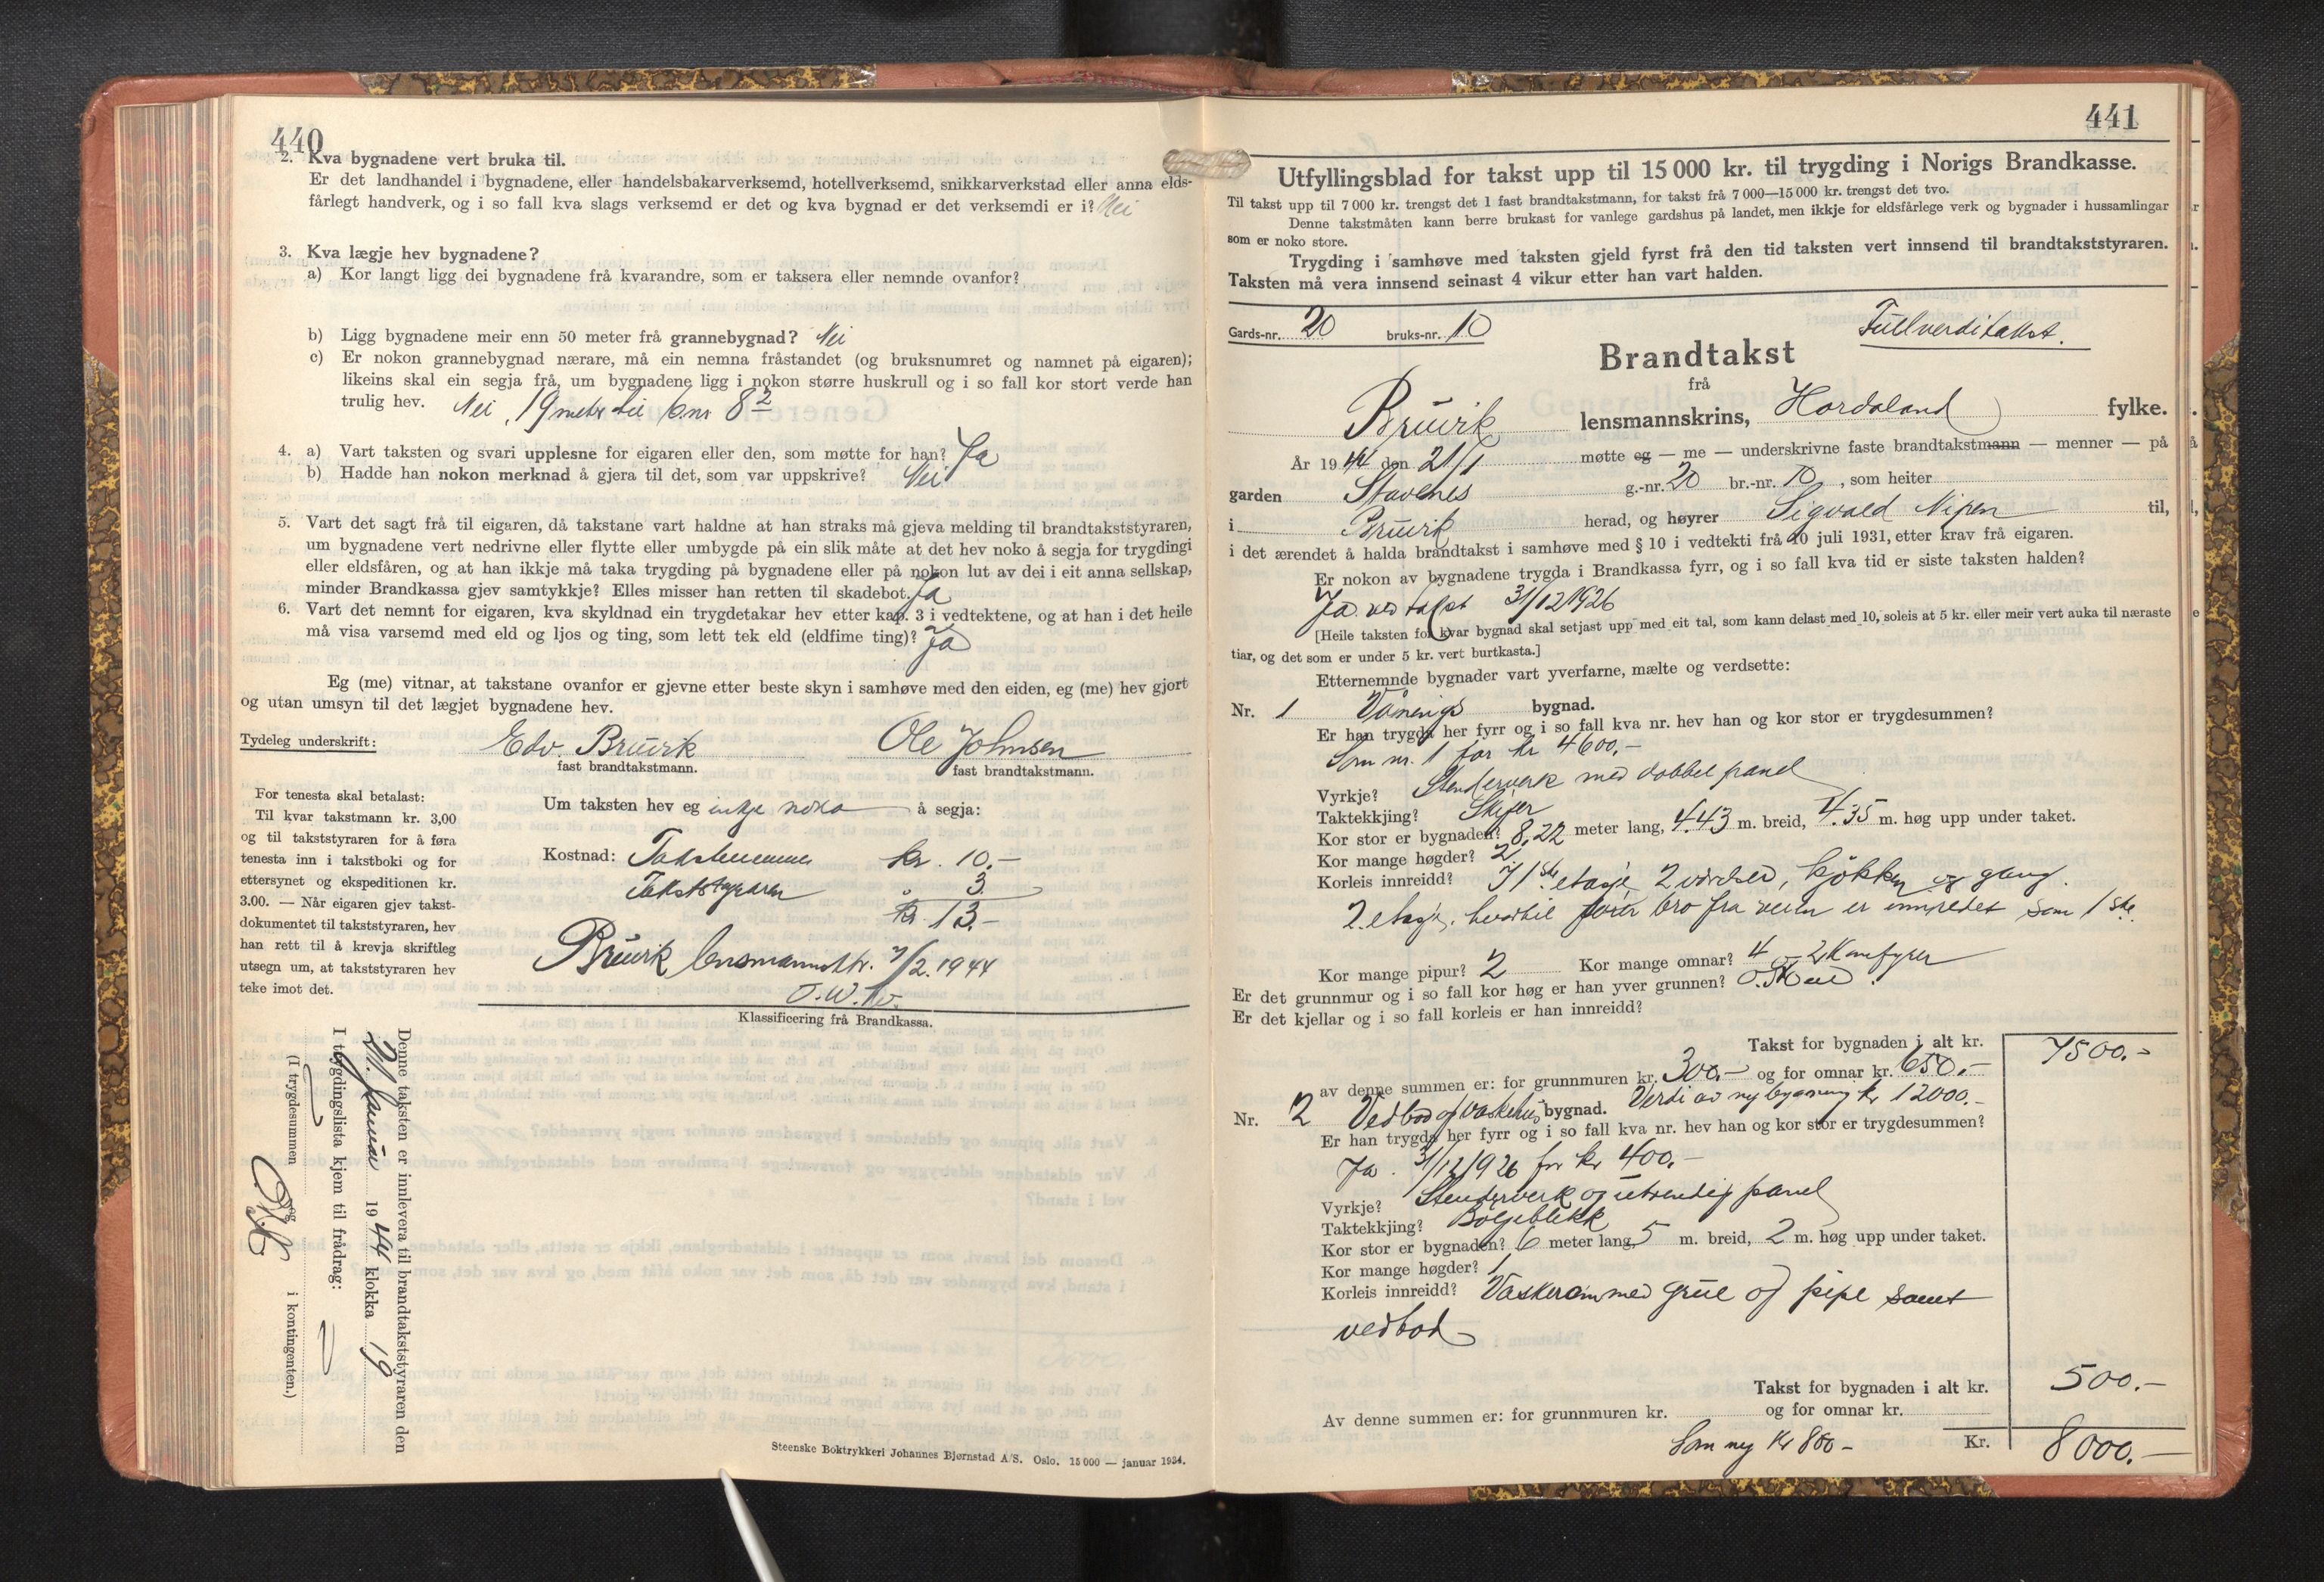 440
2. Kva bygnadene vert bruka til.
Er det landhandel i bygnadene, eller handelsbakarverksemd, hotellverksemd, snikkarverkstad eller anna elds-
fårlegt handverk, og i so fall kva slags verksemd er det og kva bygnad er det verksemdi er i? Nei
3. Kva lægje hev bygnadene?
a) Kor langt ligg dei bygnadene frå kvarandre, som er taksera eller nemnde ovanfor?
b) Ligg bygnadene meir enn 50 meter frå grannebygnad? Nei
c) Er nokon grannebygnad nærare, må ein nemna fråstandet (og bruksnumret og namnet på eigaren);
likeins skal ein segja frå, um bygnadene ligg i nokon større huskrull og i so fall kor stort verde han
trulig hev. Nei, 19 meter til bnr 8²
4. a) Vart taksten og svari upplesne for eigaren eller den, som møtte for han? Ja
b) Hadde han nokon merknad å gjera til det, som var uppskrive? Nei
5. Vart det sagt frå til eigaren, då takstane vart haldne at han straks må gjeva melding til brandtakststyraren,
um bygnadene vert nedrivne eller flytte eller umbygde på ein slik måte at det hev noko å segja for trygdingi
eller eldsfåren, og at han ikkje må taka trygding på bygnadene eller på nokon lut av dei i eit anna sellskap,
minder Brandkassa gjev samtykkje? Elles misser han retten til skadebot. Ja
6. Vart det nemnt for eigaren, kva skyldnad ein trygdetakar hev etter kap. 3 i vedtektene, og at han i det heile
må visa varsemd med eld og ljos og ting, som lett tek eld (eldfime ting)? Ja
Eg (me) vitnar, at takstane ovanfor er gjevne etter beste skyn i samhøve med den eiden, eg (me) hev gjort
og utan umsyn til det lægjet bygnadene hev.
Tydeleg underskrift: Edv. Bruvik Ole Johnsen
fast brandtakstmann. fast brandtakstmann.
For tenesta skal betalast:
Til kvar takstmann kr. 3,00
og til takststyraren for å føra
tenesta inn i takstboki og for
ettersynet og ekspeditionen kr.
3.00. — Når eigaren gjev takst-
dokumentet til takststyraren, hev
han rett til å krevja skriftleg
utsegn um, at takststyraren hev
teke imot det.
Um taksten hev eg inkje noko å segja:
Kostnad: Takstmennene kr. 10.-
Takststyraren " 3
kr. 13.-
Bruvik lensmannsktr. 7/2.1944
Klassificering frå Brandkassa.
Denne taksten er innlevera til brandtakststyraren den
21 januar 1944 klokka 19
I trygdingslista kjem til frådrag:
(I trygdesummen og i kontingenten.)
Steenske Boktrykkeri Johannes Bjørnstad A/S. Oslo. 15 000 — januar 1934.
441
Utfyllingsblad for takst upp til 15 000 kr. til trygding i Norigs Brandkasse.
Til takst upp til 7 000 kr. trengst det 1 fast brandtakstmann, for takst frå 7 000—15 000 kr. trengst det tvo.
Denne takstmåten kann berre brukast for vanlege gardshus på landet, men ikkje for eldsfårlege verk og bygnader i hussamlingar
som er noko store.
Trygding i samhøve med taksten gjeld fyrst frå den tid taksten vert innsend til brandtakststyraren.
Taksten må vera innsend seinast 4 vikur etter han vart halden.
Gards-nr. 20 bruks-nr. 10 Fullverditakst.
Brandtakst
frå
Bruvik lensmannskrins, Hordaland fylke.
År 1944 den 21/1 møtte eg — me — underskrivne faste brandtakstmann — menner — på
garden Stavenes g.-nr. 20 br.-nr. 10, som heiter
i Bruvik herad, og høyrer Sigvald Nipen til,
i det ærendet å halda brandtakst i samhøve med § 10 i vedtekti frå 20 juli 1931, etter krav frå eigaren.
Er nokon av bygnadene trygda i Brandkassa fyrr, og i so fall kva tid er siste taksten halden?
Ja ved takst 31/12 1926
[Heile taksten for kvar bygnad skal setjast upp med eit tal, som kann delast med 10, soleis at 5 kr. eller meir vert auka til næraste
tiar, og det som er under 5 kr. vert burtkasta.]
Etternemnde bygnader vart yverfarne, mælte og verdsette:
Nr. 1 Vånings bygnad.
Er han trygda her fyrr og i so fall kva nr. hev han og kor stor er trygdesummen?
Som nr. 1 for kr 4600.-
Vyrkje? Stenderverk med dobbel panel
Taktekkjing? Skifer
Kor stor er bygnaden? 8,22 meter lang, 4.43 m. breid, 4.35 m. høg upp under taket.
Kor mange høgder? 2
Korleis innreidd? I 1ste etasje 2 værelser, kjøkken og gang.
2. etasje, hvortil fører bro fra veien er innredet som 1ste.
Kor mange pipur? 2 Kor mange omnar? 4 og 2 Komfyrer
Er det grunnmur og i so fall kor høg er han yver grunnen?
Er det kjellar og i so fall korleis er han innreidd?
Takst for bygnaden i alt kr. 7500.-
av denne summen er: for grunnmuren kr. 300.- og for omnar kr. 650.-
Verdi av ny bygning kr 12000.-
Nr. 2 Vedbod og vaskehus bygnad.
Er han trygda her fyrr og i so fall kva nr. hev han og kor stor er trygdesummen?
Ja. 31/12 1926 for kr 400.-
Vyrkje? Stenderverk og utvendig panel
Taktekkjing? Bølgeblikk
Kor stor er bygnaden? 6 meter lang, 5 m. breid, 2 m. høg upp under taket.
Kor mange høgder? 1
Korleis innreidd? Vaskerom med grue og pipe samt
vedbod
Takst for bygnaden i alt kr. 500.-
Av denne summen er: for grunnmuren kr. og for omnar kr.
Som ny kr 800- Kr. 8000.-